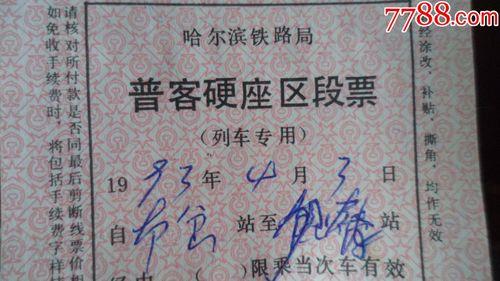 7788.com
哈尔滨铁路局
普客硬座区段票
(列车专用)
1993年4月3日
自 站至 站
经由 ( )限乘当次车有效
请核对所付款是否同最后剪断线票价相
如免收手续费时，将包括手续费字样
经涂改、补贴、撕角，均作无效